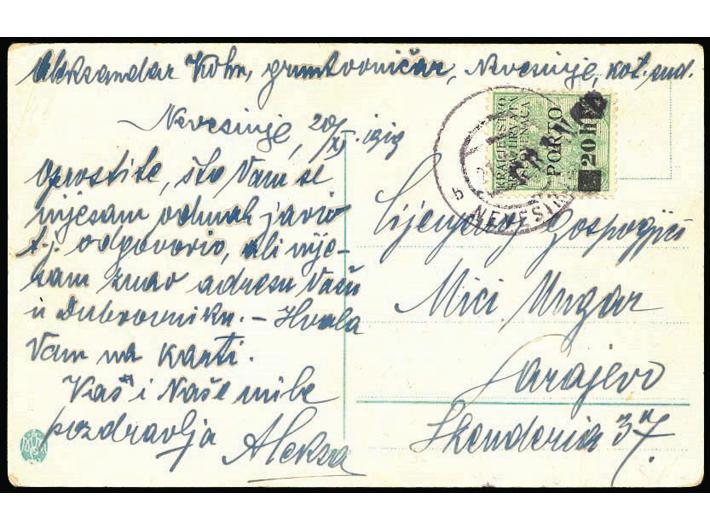 Aleksandar Kohn, gruntovničar, Nevesinje, kot. sud.
Nevesinje, 20/XI. 1919
Oprostite, što Vam se
nijesam odmah javio
t.j. odgovorio, ali nije-
sam znao adresu Vašu
u Dubrovniku. – Hvala
Vam na karti.
Vaš i Naše mile
pozdravlja
Aleksa
KRALJEVSTVO
SRBA HRVATA
SLOVENACA
PORTO
20 h
NEVESINJE
b
Cijenjenoj Gospogjici
Mici Ungar
Sarajevo
Skenderia 37.